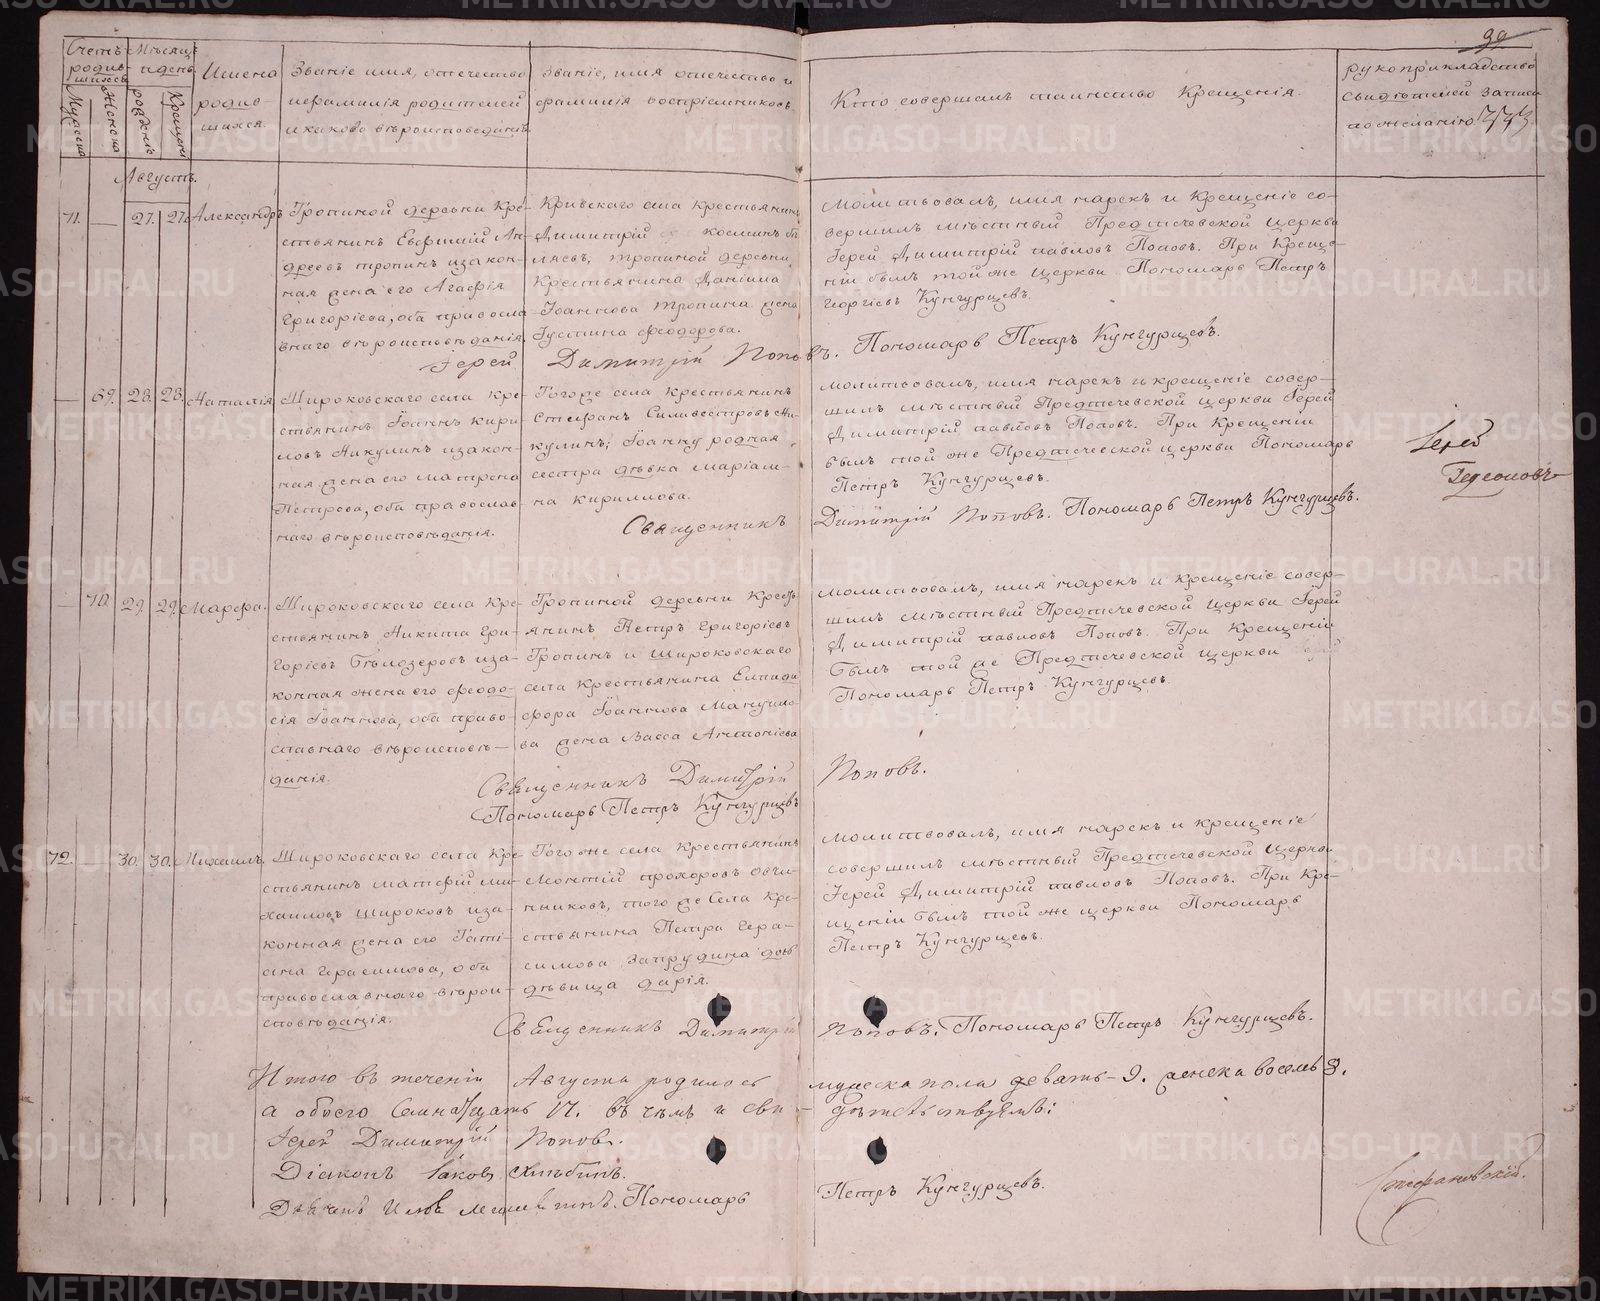 99
Счетъ родившихся
Мужеска
Женска
Мѣсяцъ и день
рожденія
Крещенія
Имена родившихся.
Званіе имя, отечество
и фамилія родителей
и какова вѣроисповеданія.
Званіе, имя отечество и
фамилія воспріемниковъ.
Кто совершалъ таинство Крещенія.
рукоприкладство
свидѣтелей записи
по желанію.
Августъ.
71. — 27. 27. Александръ
Тропиной деревни Кре-
стьянинъ Евфимій Ан-
дреевъ тропинъ и закон-
ная жена его Агафія
Григоріева, оба правосла-
внаго вѣроисповѣданія
Кривскаго села Крестьянинъ
Димитрій Космин
ляевъ; тропиной деревни
Крестьянина Даніила
Іоаннова Тропина жена
Іустина Феодорова.
Молитвовалъ, имя нарекъ и Крещеніе со-
вершилъ мѣстный Предтечевской Церкви
Іерей Димитрій павловъ Поповъ. При Креще-
ніи былъ той же Церкви Пономарь Петръ
Георгіевъ Кунгурцевъ.
Іерей Димитрій Поповъ. Пономарь Петръ Кунгурцевъ.
— 69. 28. 28. Наталія
Широковскаго села Кре-
стьянинъ Іоаннъ Кири-
ловъ Никулинъ и закон-
ная жена его Матрона
Петрова, оба православ-
наго вѣроисповѣданія.
Того же села Крестьянинъ
Стефанъ Силивестровъ Ни-
кулинъ; Іоанну родная
сестра дѣвка Маріам-
на Кириллова.
Молитвовалъ, имя нарекъ и крещеніе совер-
шилъ мѣстный Предтечевской церкви Іерей
Димитрій павловъ Поповъ. При Крещеніи
былъ той же Предтечевской церкви Пономарь
Петръ Кунгурцевъ.
Священникъ Димитрій Поповъ. Пономарь Петръ Кунгурцевъ.
Іерей
Гедеоновъ
— 70. 29. 29. Марфа.
Широковскаго села Кре-
стьянинъ Никита Гри-
горіевъ Бѣлозеровъ и за-
конная жена его Феодо-
сія Іоаннова, оба право-
славнаго вѣроисповѣ-
данія.
Тропиной деревни Кресть-
янинъ Петръ Григоріевъ
Тропинъ и Широковскаго
села Крестьянина Елпиди
фора Іоаннова Мануило-
ва жена Васса Антоніева
Молитвовалъ, имя нарекъ и крещеніе совер-
шилъ мѣстный Предтечевской Церкви Іерей
Димитрій павловъ Поповъ. При Крещеніи
былъ той же Предтечевской церкви
Пономарь Петръ Кунгурцевъ.
Священникъ Димитрій Поповъ.
Пономарь Петръ Кунгурцевъ
72. — 30. 30. Михаилъ
Широковскаго села Кре-
стьянинъ Матфій Ми-
хаиловъ Широковъ и за-
конная жена его Тати-
ана Герасимова, оба
православнаго вѣрои-
сповѣданія.
Того же села Крестьянинъ
Леонтій Прохоровъ Овчи-
нниковъ, того же Села Кре-
стьянина Петра Гера-
симова Запрудина доч
дѣвица Дарія.
Молитвовалъ, имя нарекъ и крещеніе
совершилъ мѣстный Предтечевской Церкви
Іерей Димитрій павловъ Поповъ. При Кре-
щеніи былъ той же церкви Пономарь
Петръ Кунгурцевъ.
Священникъ Димитрій Поповъ. Пономарь Петръ Кунгурцевъ.
Итого въ теченіи Августа родилось мужеска пола девять 9. женска восемь 8.
а обоего Семнатцать 17. въ чемъ и сви-дѣтельствуемъ:
Іерей Димитрій Поповъ.
Діаконъ Іаковъ Хлѣбинъ.
Пономарь Петръ Кунгурцевъ.
Стефановскій.
METRIKI.GASO-URAL.RU